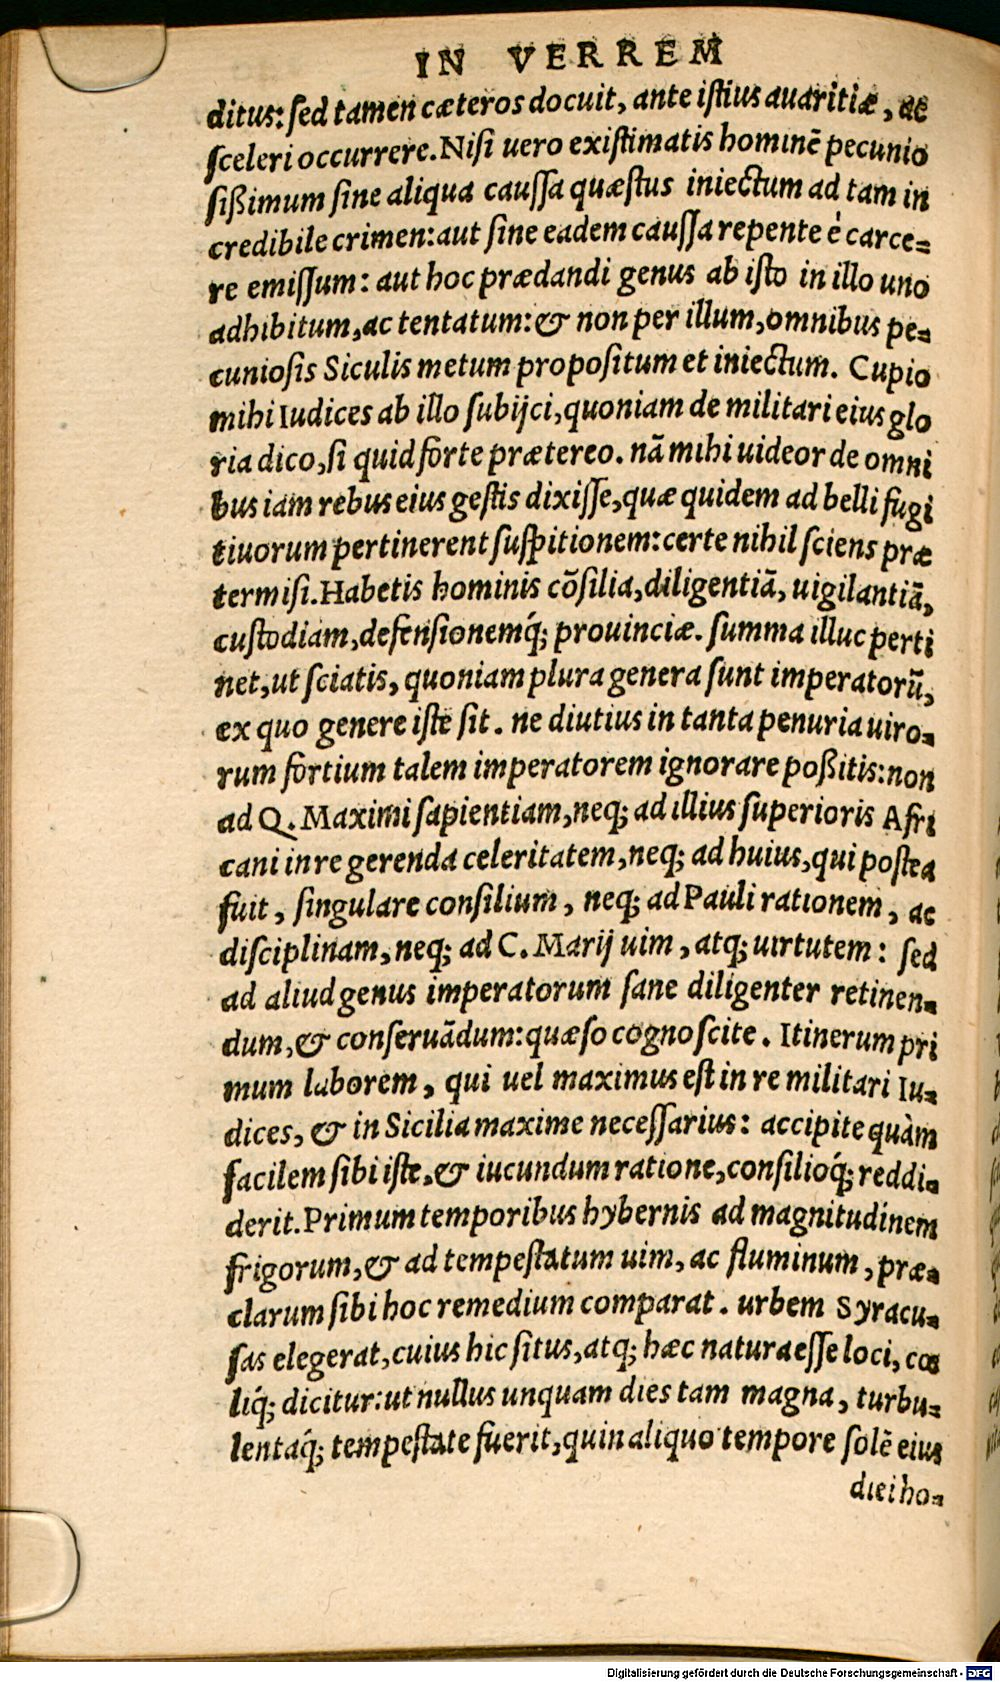 IN VERREM
ditus: sed tamen cæteros docuit, ante istius auaritiæ, ac
sceleri occurrere. Nisi uero existimatis hominē pecunio
sißimum sine aliqua caussa quæstus iniectum ad tam in
credibile crimen: aut sine eadem caussa repente è carce=
re emissum: aut hoc prædandi genus ab isto in illo uno
adhibitum, ac tentatum: & non per illum, omnibus pe=
cuniosis Siculis metum propositum et iniectum. Cupio
mihi Iudices ab illo subijci, quoniam de militari eius glo
ria dico, si quid forte prætereo. nā mihi uideor de omni
bus iam rebus eius gestis dixisse, quæ quidem ad belli fugi
tiuorum pertinerent suspitionem: certe nihil sciens præ
termisi. Habetis hominis cōsilia, diligentiā, uigilantiā,
custodiam, defensionemq́; prouinciæ. summa illuc perti
net, ut sciatis, quoniam plura genera sunt imperatorū,
ex quo genere iste sit. ne diutius in tanta penuria uiro=
rum fortium talem imperatorem ignorare poßitis: non
ad Q. Maximi sapientiam, neq; ad illius superioris Afri
cani in re gerenda celeritatem, neq; ad huius, qui postea
fuit, singulare consilium, neq; ad Pauli rationem, ac
disciplinam, neq; ad C. Marij uim, atq; uirtutem: sed
ad aliud genus imperatorum sane diligenter retinen=
dum, & conseruādum: quæso cognoscite. Itinerum pri
mum laborem, qui uel maximus est in re militari Iu=
dices, & in Sicilia maxime necessarius: accipite quàm
facilem sibi iste, & iucundum ratione, consilioq́; reddi=
derit. Primum temporibus hybernis ad magnitudinem
frigorum, & ad tempestatum uim, ac fluminum, præ=
clarum sibi hoc remedium comparat. urbem Syracu=
sas elegerat, cuius hic situs, atq; hæc natura esse loci, cœ
liq́; dicitur: ut nullus unquam dies tam magna, turbu=
lentaq́; tempestate fuerit, quin aliquo tempore solē eius
diei ho=
Digitalisierung gefördert durch die Deutsche Forschungsgemeinschaft - DFG